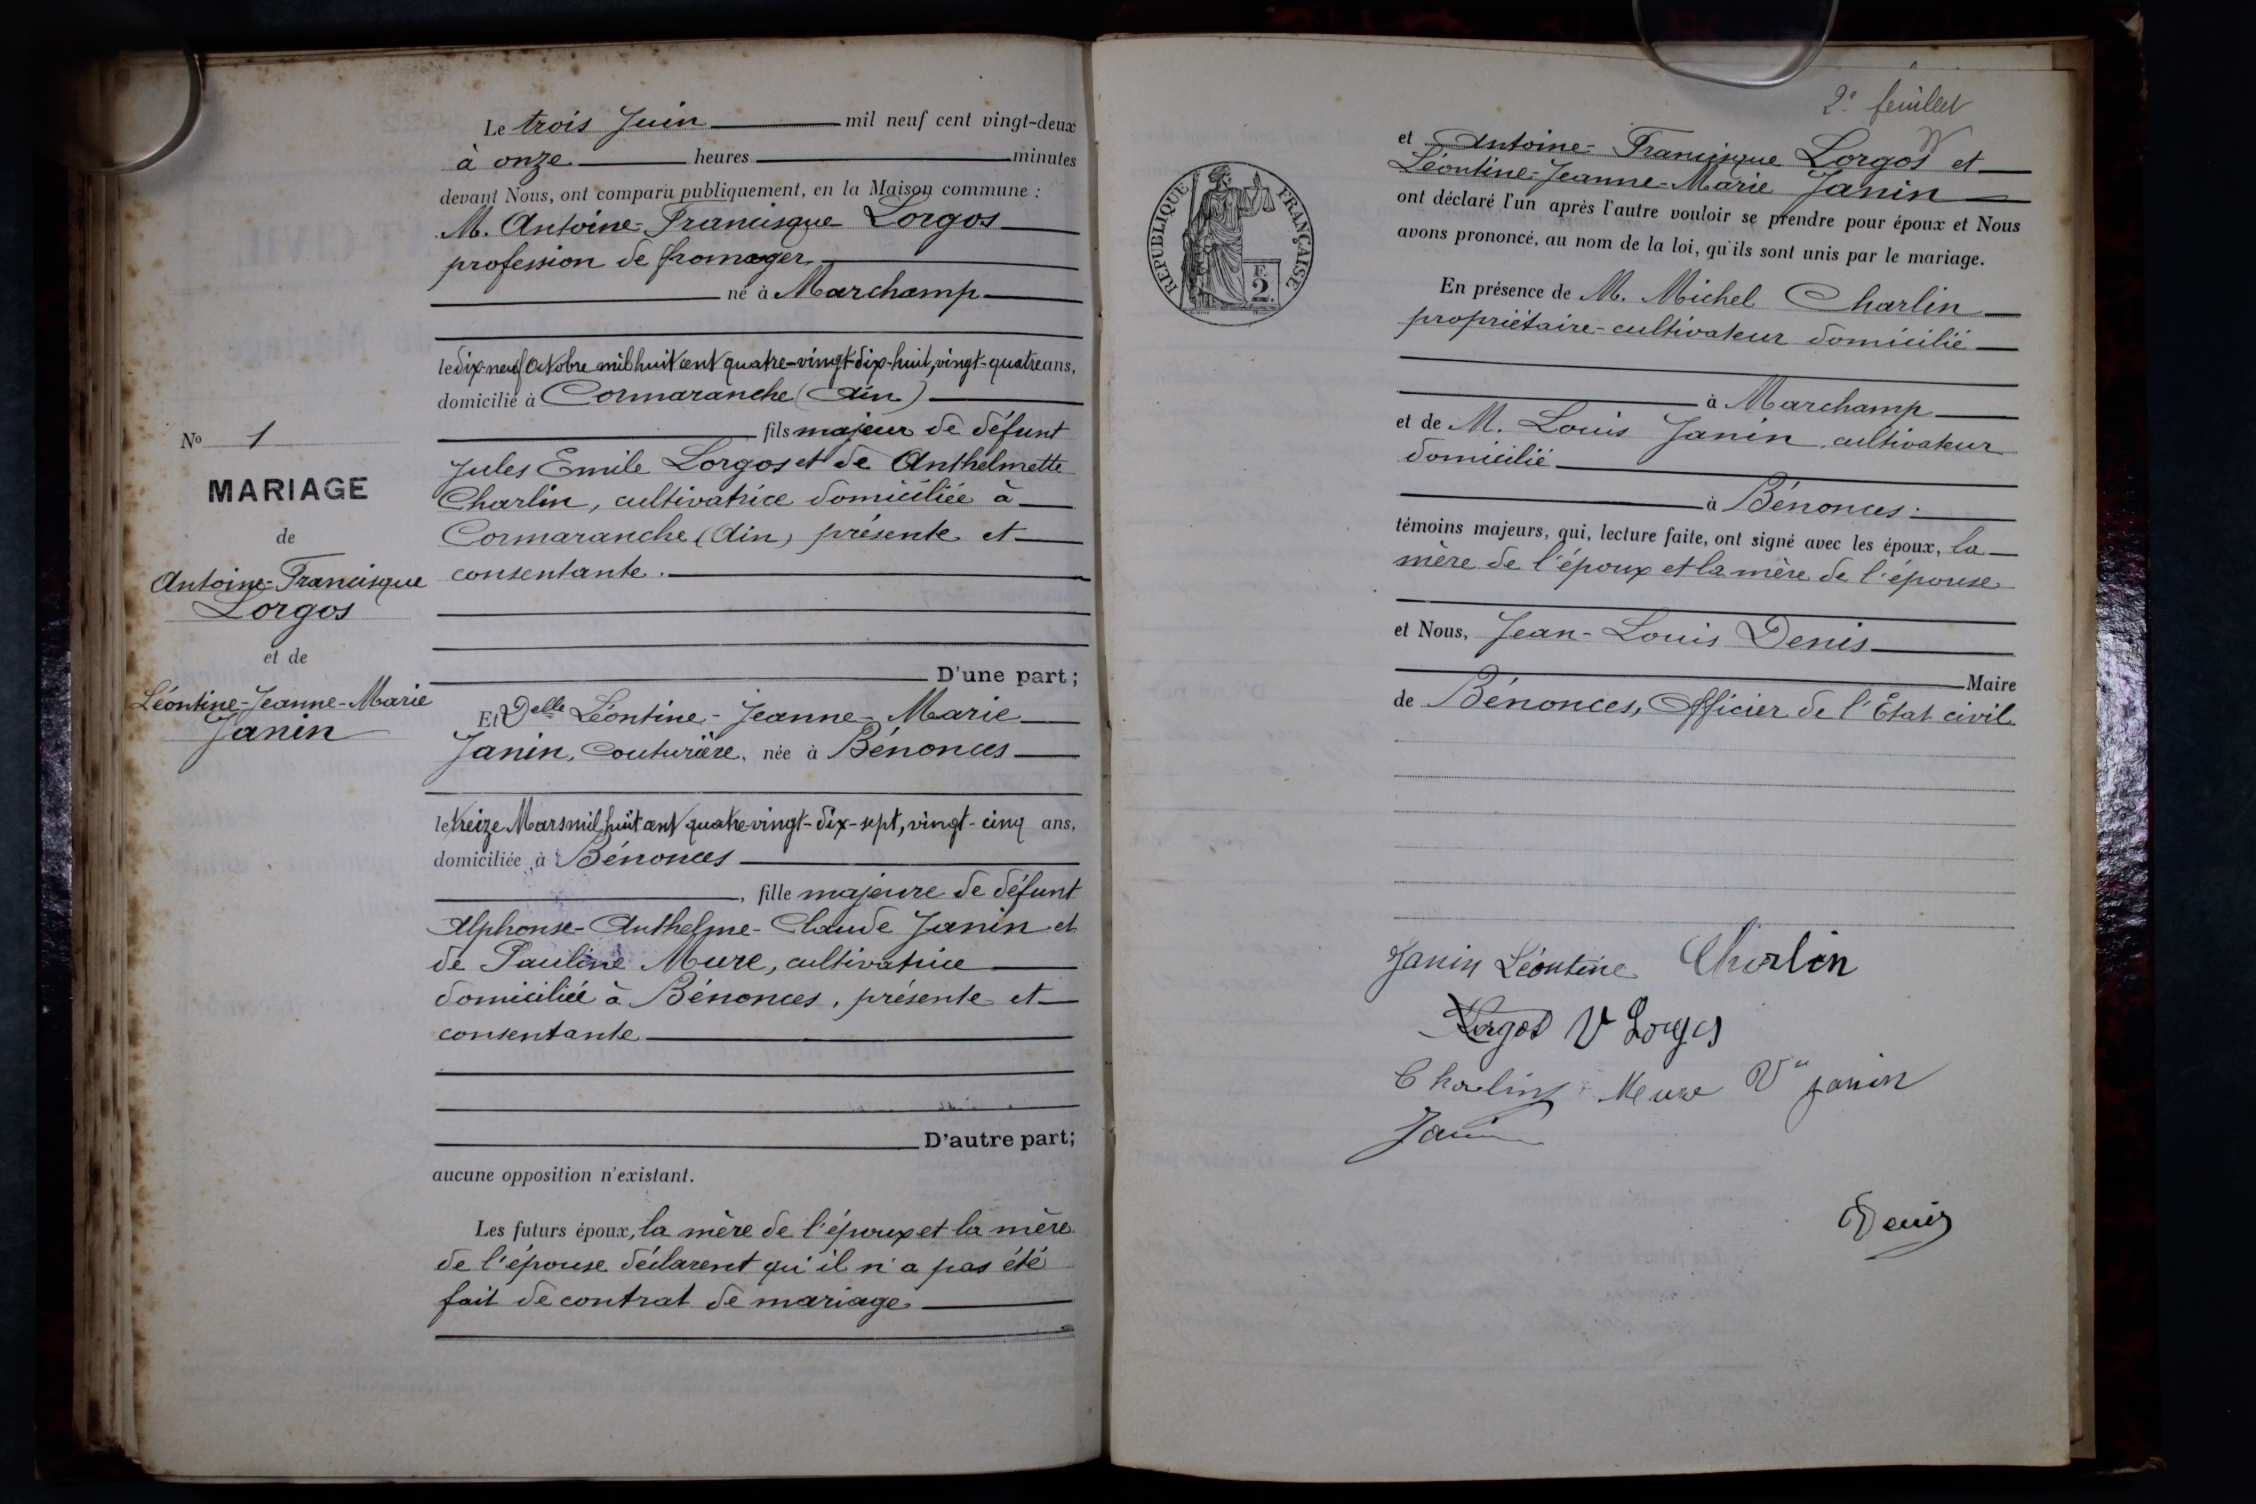 Le trois Juin mil neuf cent vingt-deux
à onze heures minutes
devant Nous, ont comparu publiquement, en la Maison commune :
M. Antoine-Francisque Lorgos
profession de fromager
né à Marchamp
le dix-neuf Octobre mil huit cent quatre-vingt-dix-huit, vingt-quatre ans,
domicilié à Cormaranche (Ain)
fils majeur de défunt
Jules Emile Lorgos et de Anthelmette
Charlin, cultivatrice domiciliée à
Cormaranche (Ain) présente et
consentante.
D'une part;
Et Delle Léontine-Jeanne-Marie
Janin, Couturière, née à Bénonces
le treize Mars mil huit cent quatre-vingt-dix-sept, vingt-cinq ans,
domiciliée à Bénonces
, fille majeure de défunt
Alphonse-Anthelme-Claude Janin et
de Pauline Mure, cultivatrice
domiciliée à Bénonces, présente et
consentante
D'autre part;
aucune opposition n'existant.
Les futurs époux, la mère de l'époux et la mère
de l'épouse déclarent qu'il n'a pas été
fait de contrat de mariage
No 1
MARIAGE
de
Antoine-Francisque
Lorgos
et de
Léontine-Jeanne-Marie
Janin
2e feuillet
RÉPUBLIQUE FRANÇAISE
F.
2
et Antoine-Francisque Lorgos et
Léontine-Jeanne-Marie Janin
ont déclaré l'un après l'autre vouloir se prendre pour époux et Nous
avons prononcé, au nom de la loi, qu'ils sont unis par le mariage.
En présence de M. Michel Charlin
propriétaire-cultivateur domicilié
à Marchamp
et de M. Louis Janin, cultivateur
domicilié
à Bénonces
témoins majeurs, qui, lecture faite, ont signé avec les époux, la
mère de l'époux et la mère de l'épouse
et Nous, Jean-Louis Denis
Maire
de Bénonces, Officier de l'Etat civil
Janin Léontine Charlin
Lorgos V Lorgos
Charlin Mure Ve Janin
Janin
Denis